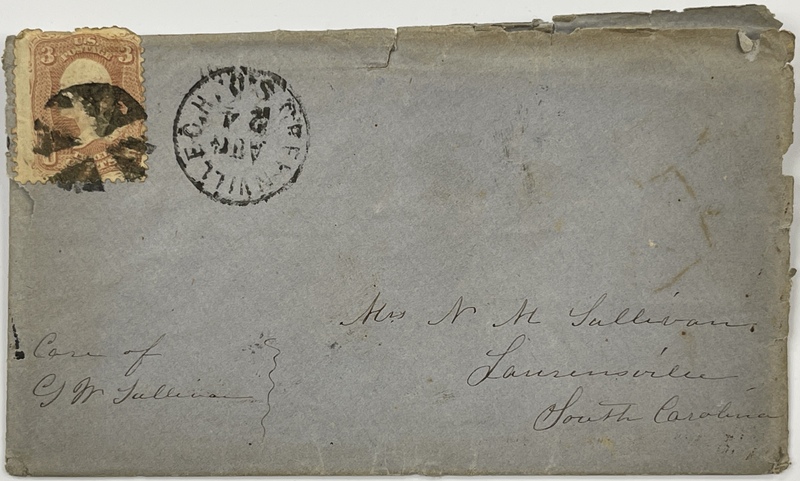 3 U.S. 3
POSTAGE
GREENVILLE C.H. S.C.
Mrs N M Sullivan.
Laurensville
South Carolina
Care of
G W Sullivan